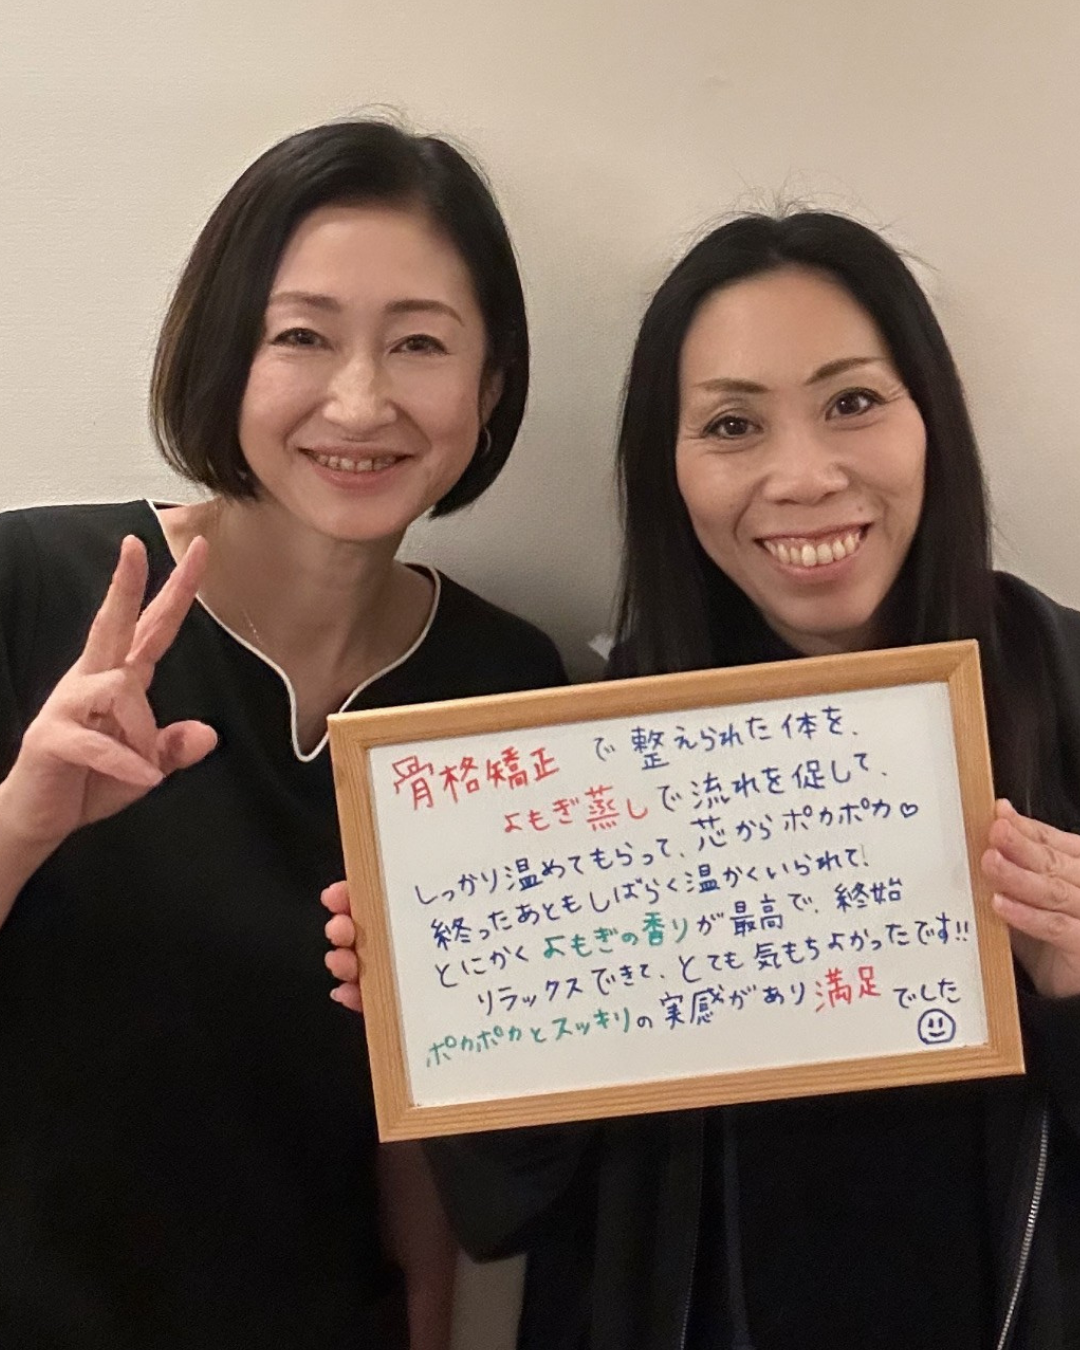 骨格矯正で整えられた体を、
よもぎ蒸しで流れを促して、
しっかり温めてもらって、芯からポカポカ♡
終ったあともしばらく温かくいられて!
とにかくよもぎの香りが最高で、終始
リラックスできて、とても気もちよかったです!!
ポカポカとスッキリの実感があり満足でした